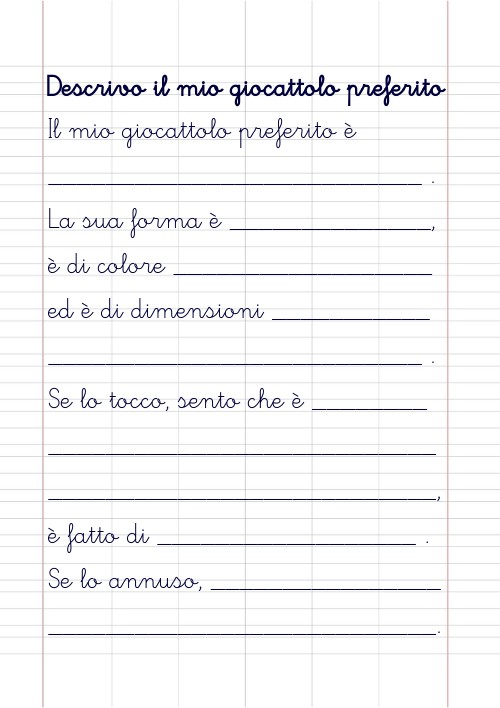 Descrivo il mio giocattolo preferito
Il mio giocattolo preferito è
__________________________ .
La sua forma è ______________,
è di colore __________________
ed è di dimensioni ___________
__________________________ .
Se lo tocco, sento che è ________
___________________________
___________________________,
è fatto di __________________ .
Se lo annuso, ________________
___________________________.